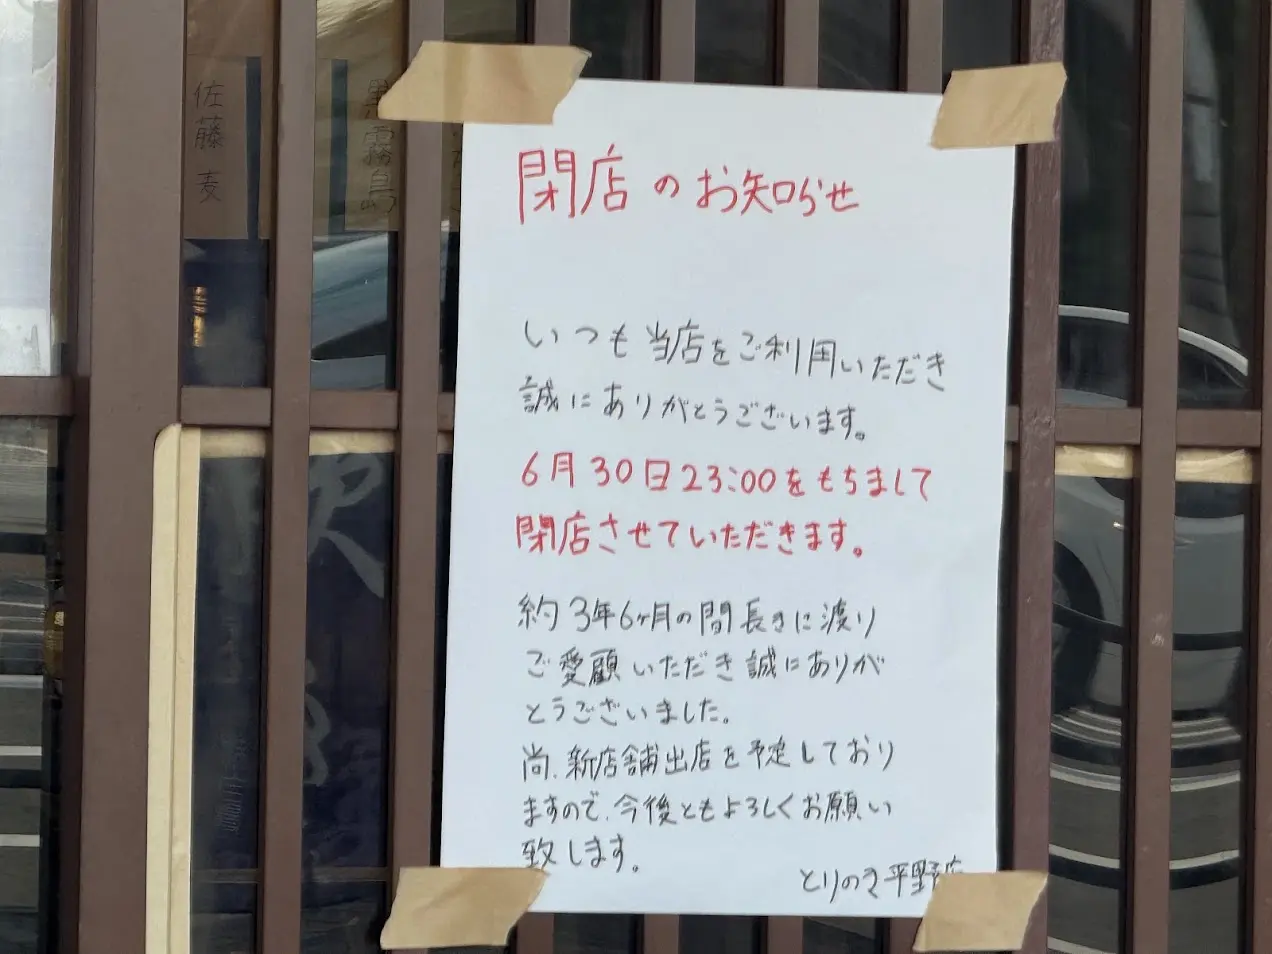 佐藤麦
黒霧島
閉店のお知らせ
いつも当店をご利用いただき
誠にありがとうございます。
6月30日23:00をもちまして
閉店させていただきます。
約3年6ヶ月の間長きに渡り
ご愛顧いただき誠にありが
とうございました。
尚、新店舗出店を予定しており
ますので、今後ともよろしくお願い
致します。
とりのま平野店